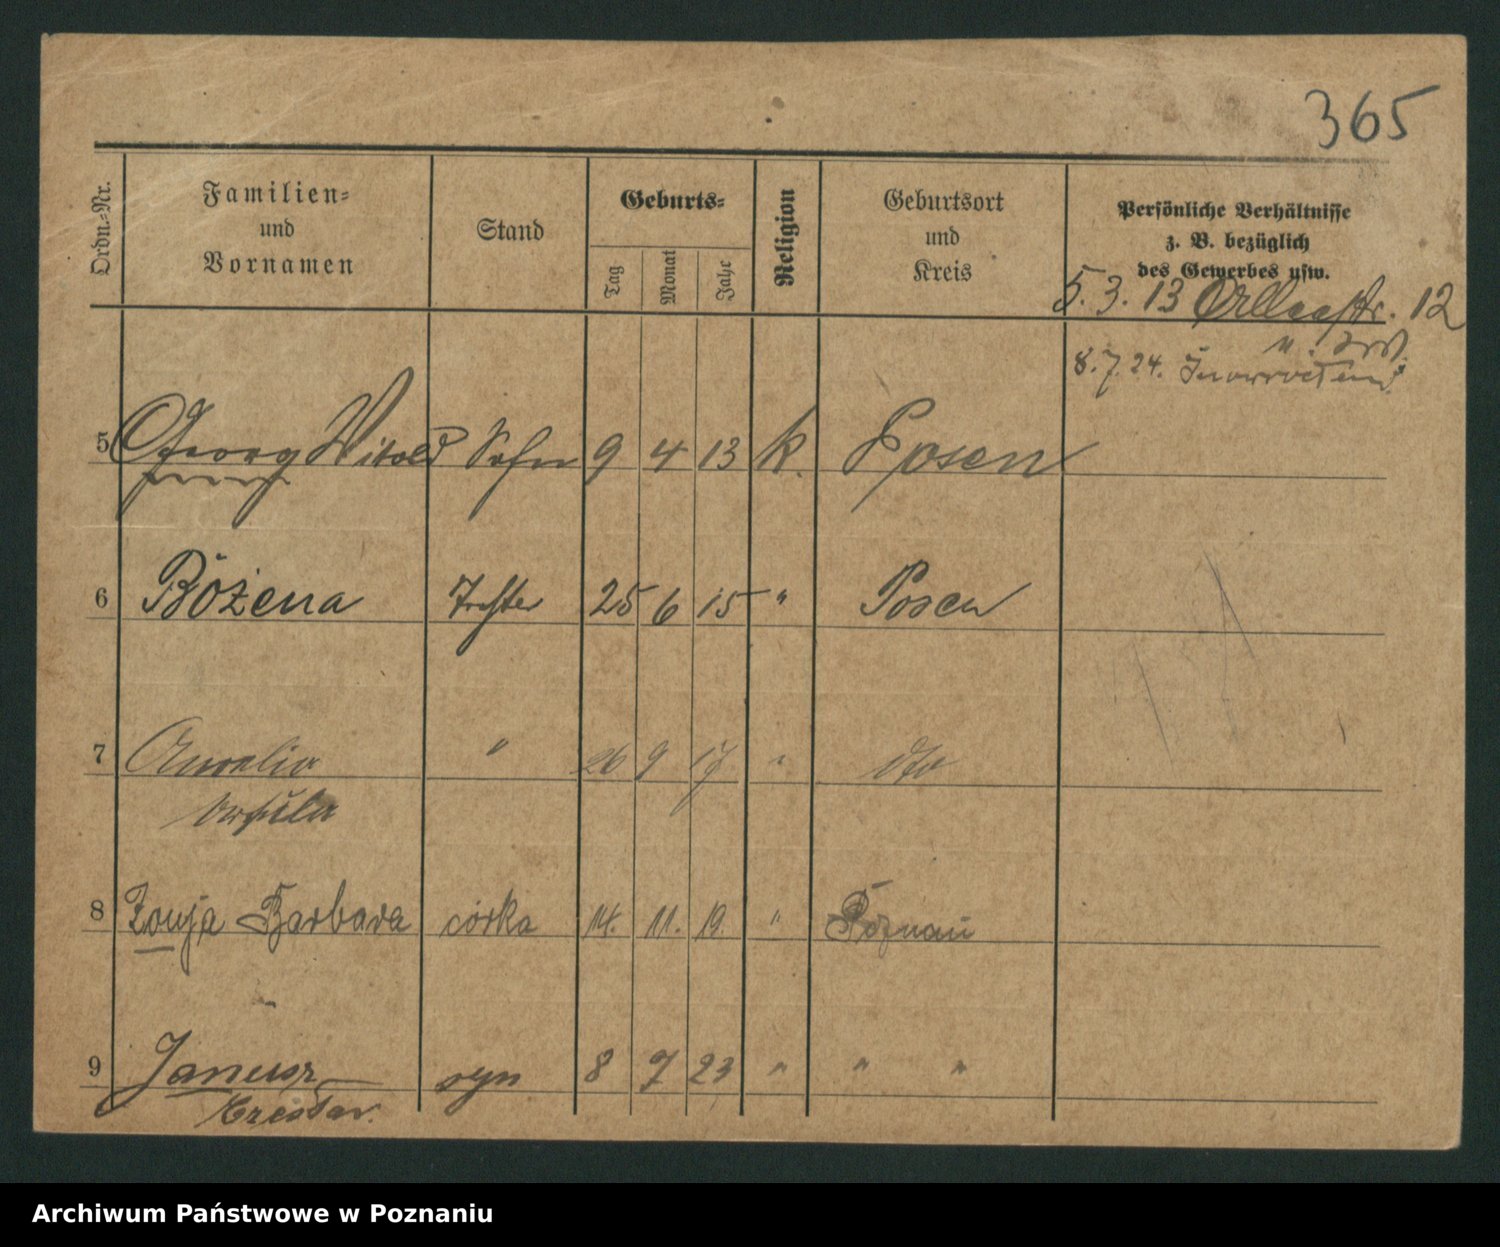 365
Ordn.-Nr.
Familien-
und
Vornamen
Stand
Geburts-
Tag
Monat
Jahr
Religion
Geburtsort
und
Kreis
Persönliche Verhältnisse
z. B. bezüglich
des Gewerbes usw.
5. 3. 13 12
8. 7. 24.
5 Georg Witold Sohn 9 4 13 k. Posen
6 Bożena Tochter 25 6 15 " Posen
7 Aurelia " 26 9 17 " dto
Ursula
8 Zonja Barbara córka 14. 11. 19. " Poznań
9 Janusz syn 8 7 23 " " "
Czesław.
Archiwum Państwowe w Poznaniu